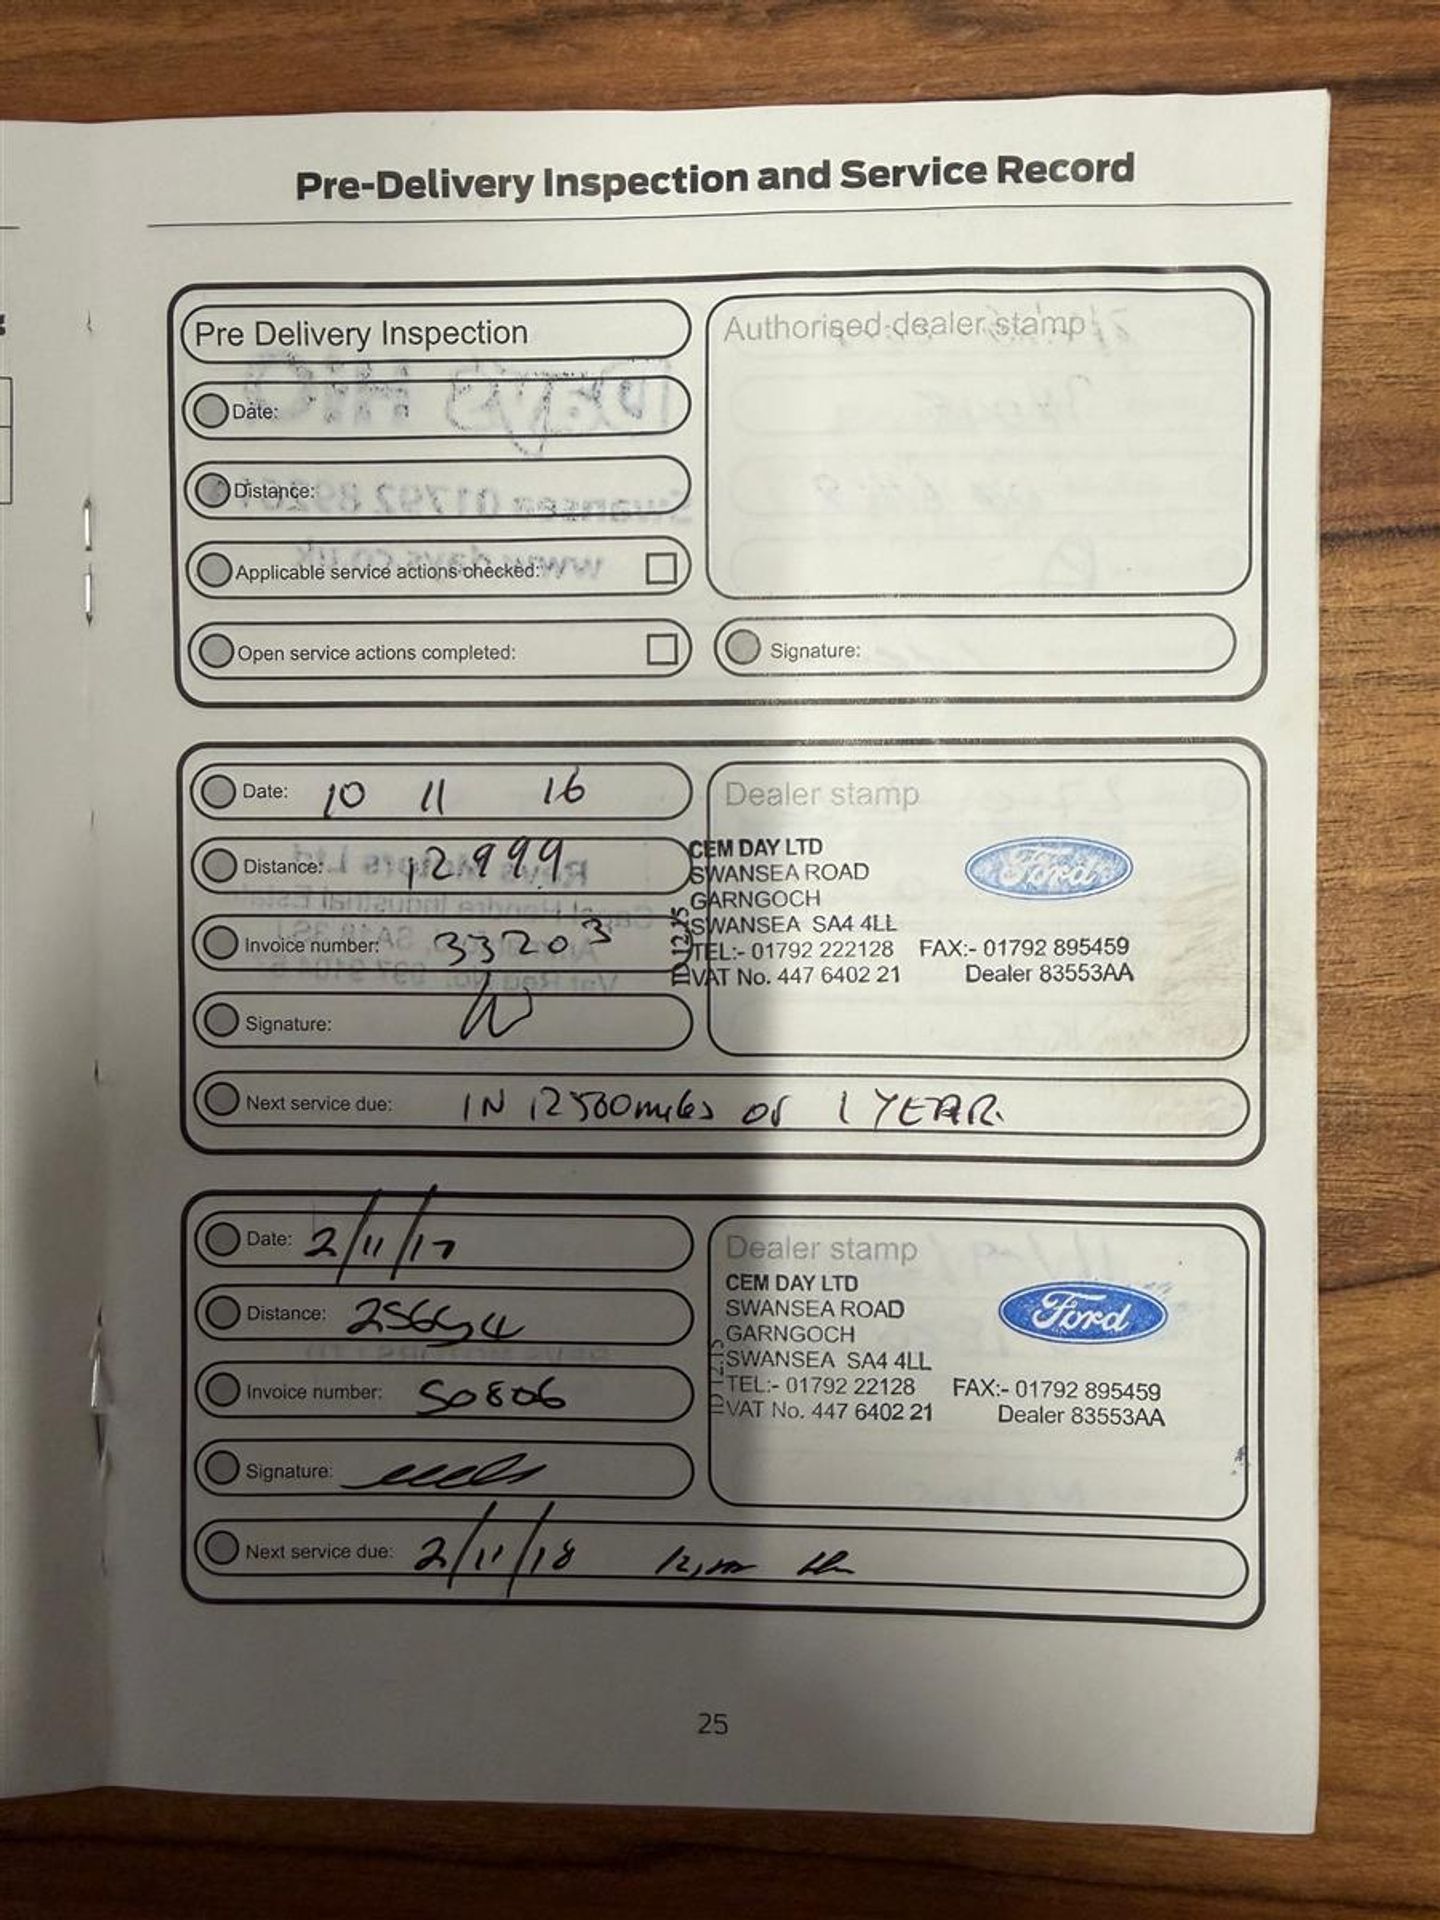 Pre-Delivery Inspection and Service Record
Pre Delivery Inspection
Date:
Distance:
Applicable service actions checked:
Open service actions completed:
Authorised dealer stamp
Signature:
Date: 10 11 16
Distance: 12999
Invoice number: 33203
Signature:
Dealer stamp
CEM DAY LTD
SWANSEA ROAD
GARNGOCH
SWANSEA SA4 4LL
TEL:- 01792 222128 FAX:- 01792 895459
VAT No. 447 6402 21 Dealer 83553AA
ID 12.15
Ford
Next service due: IN 12500 miles or 1 YEAR.
Date: 2/11/17
Distance:
Invoice number: 50806
Signature:
Dealer stamp
CEM DAY LTD
SWANSEA ROAD
GARNGOCH
SWANSEA SA4 4LL
TEL:- 01792 22128 FAX:- 01792 895459
VAT No. 447 6402 21 Dealer 83553AA
ID 12.15
Ford
Next service due: 2/11/18
25